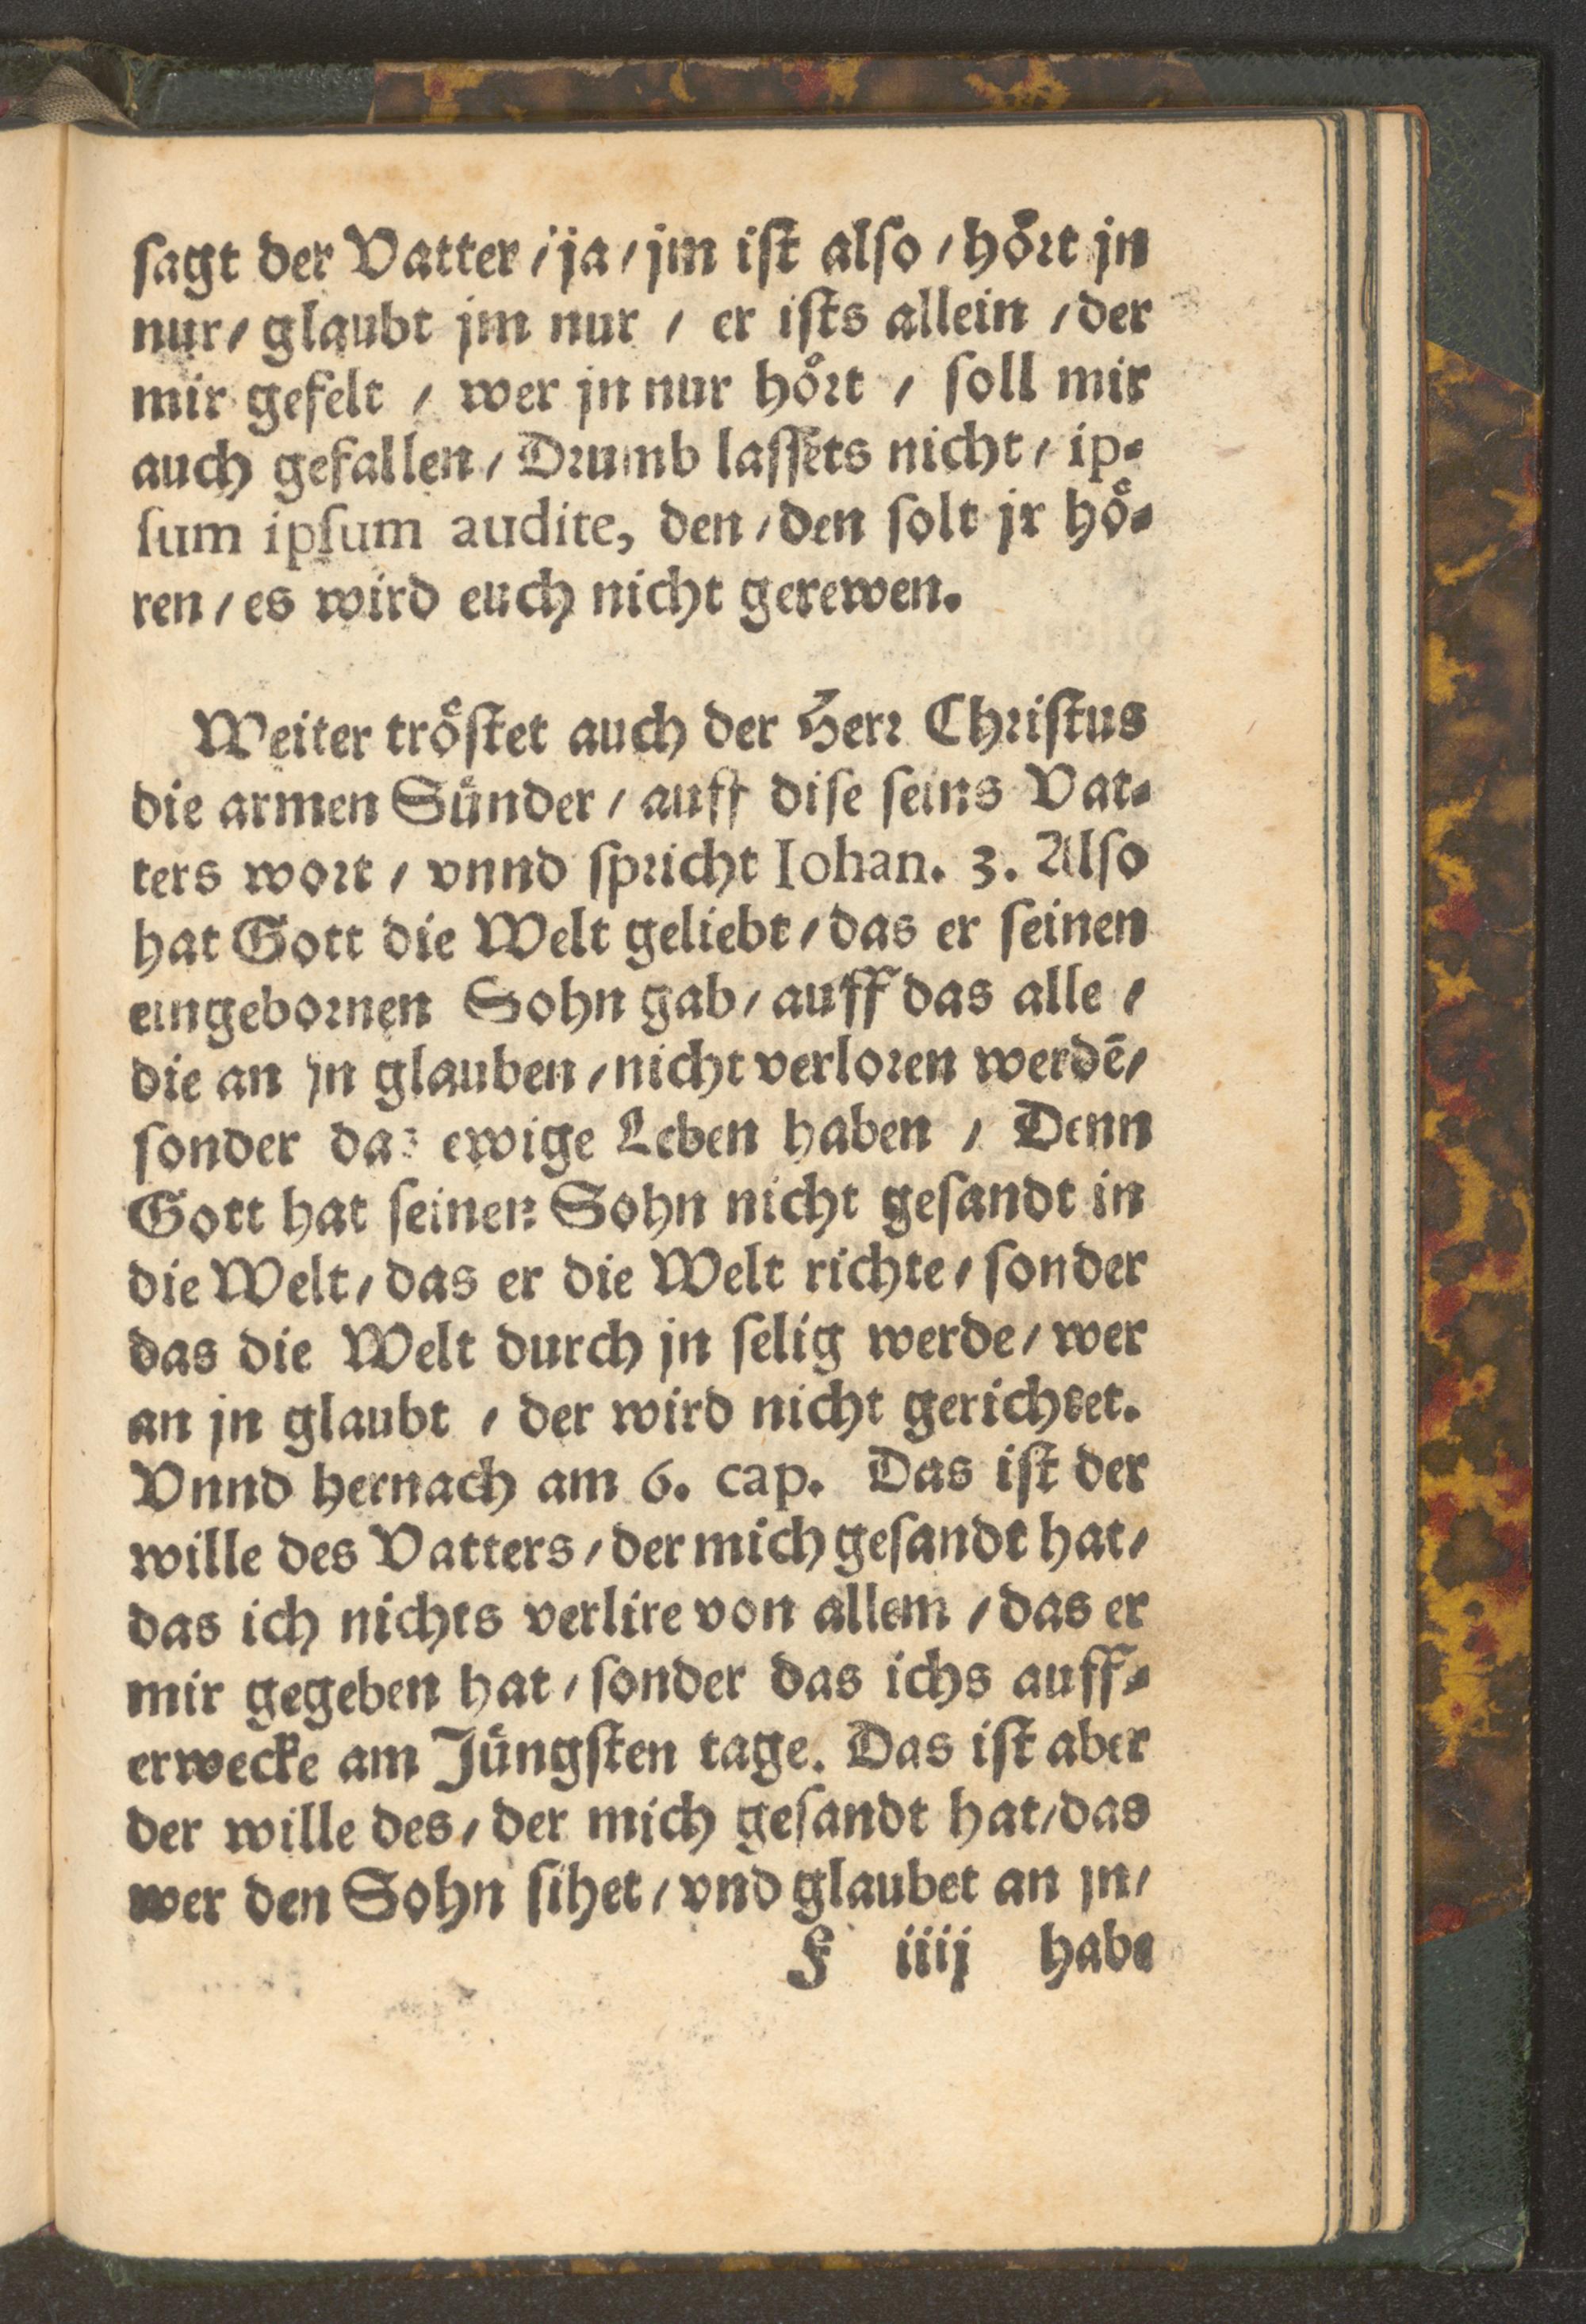 sagt der Vatter / ja / jm ist also / hoͤrt jn
nur / glaubt jm nur / er ists allein / der
mir gefelt / wer jn nur hoͤrt / soll mir
auch gefallen / Drumb lassets nicht / ip-
sum ipsum audite, den / den solt jr hoͤ-
ren / es wird euch nicht gerewen.
Weiter troͤstet auch der Herr Christus
die armen Suͤnder / auff dise seins Vat-
ters wort / vnnd spricht Iohan. 3. Also
hat Gott die Welt geliebt / das er seinen
eingebornen Sohn gab / auff das alle /
die an jn glauben / nicht verloren werdē /
sonder das ewige Leben haben / Denn
Gott hat seinen Sohn nicht gesandt in
die Welt / das er die Welt richte / sonder
das die Welt durch jn selig werde / wer
an jn glaubt / der wird nicht gerichtet.
Vnnd hernach am 6. cap. Das ist der
wille des Vatters / der mich gesandt hat /
das ich nichts verlire von allem / das er
mir gegeben hat / sonder das ichs auff-
erwecke am Juͤngsten tage. Das ist aber
der wille des / der mich gesandt hat / das
wer den Sohn sihet / vnd glaubet an jn /
F iiij habe